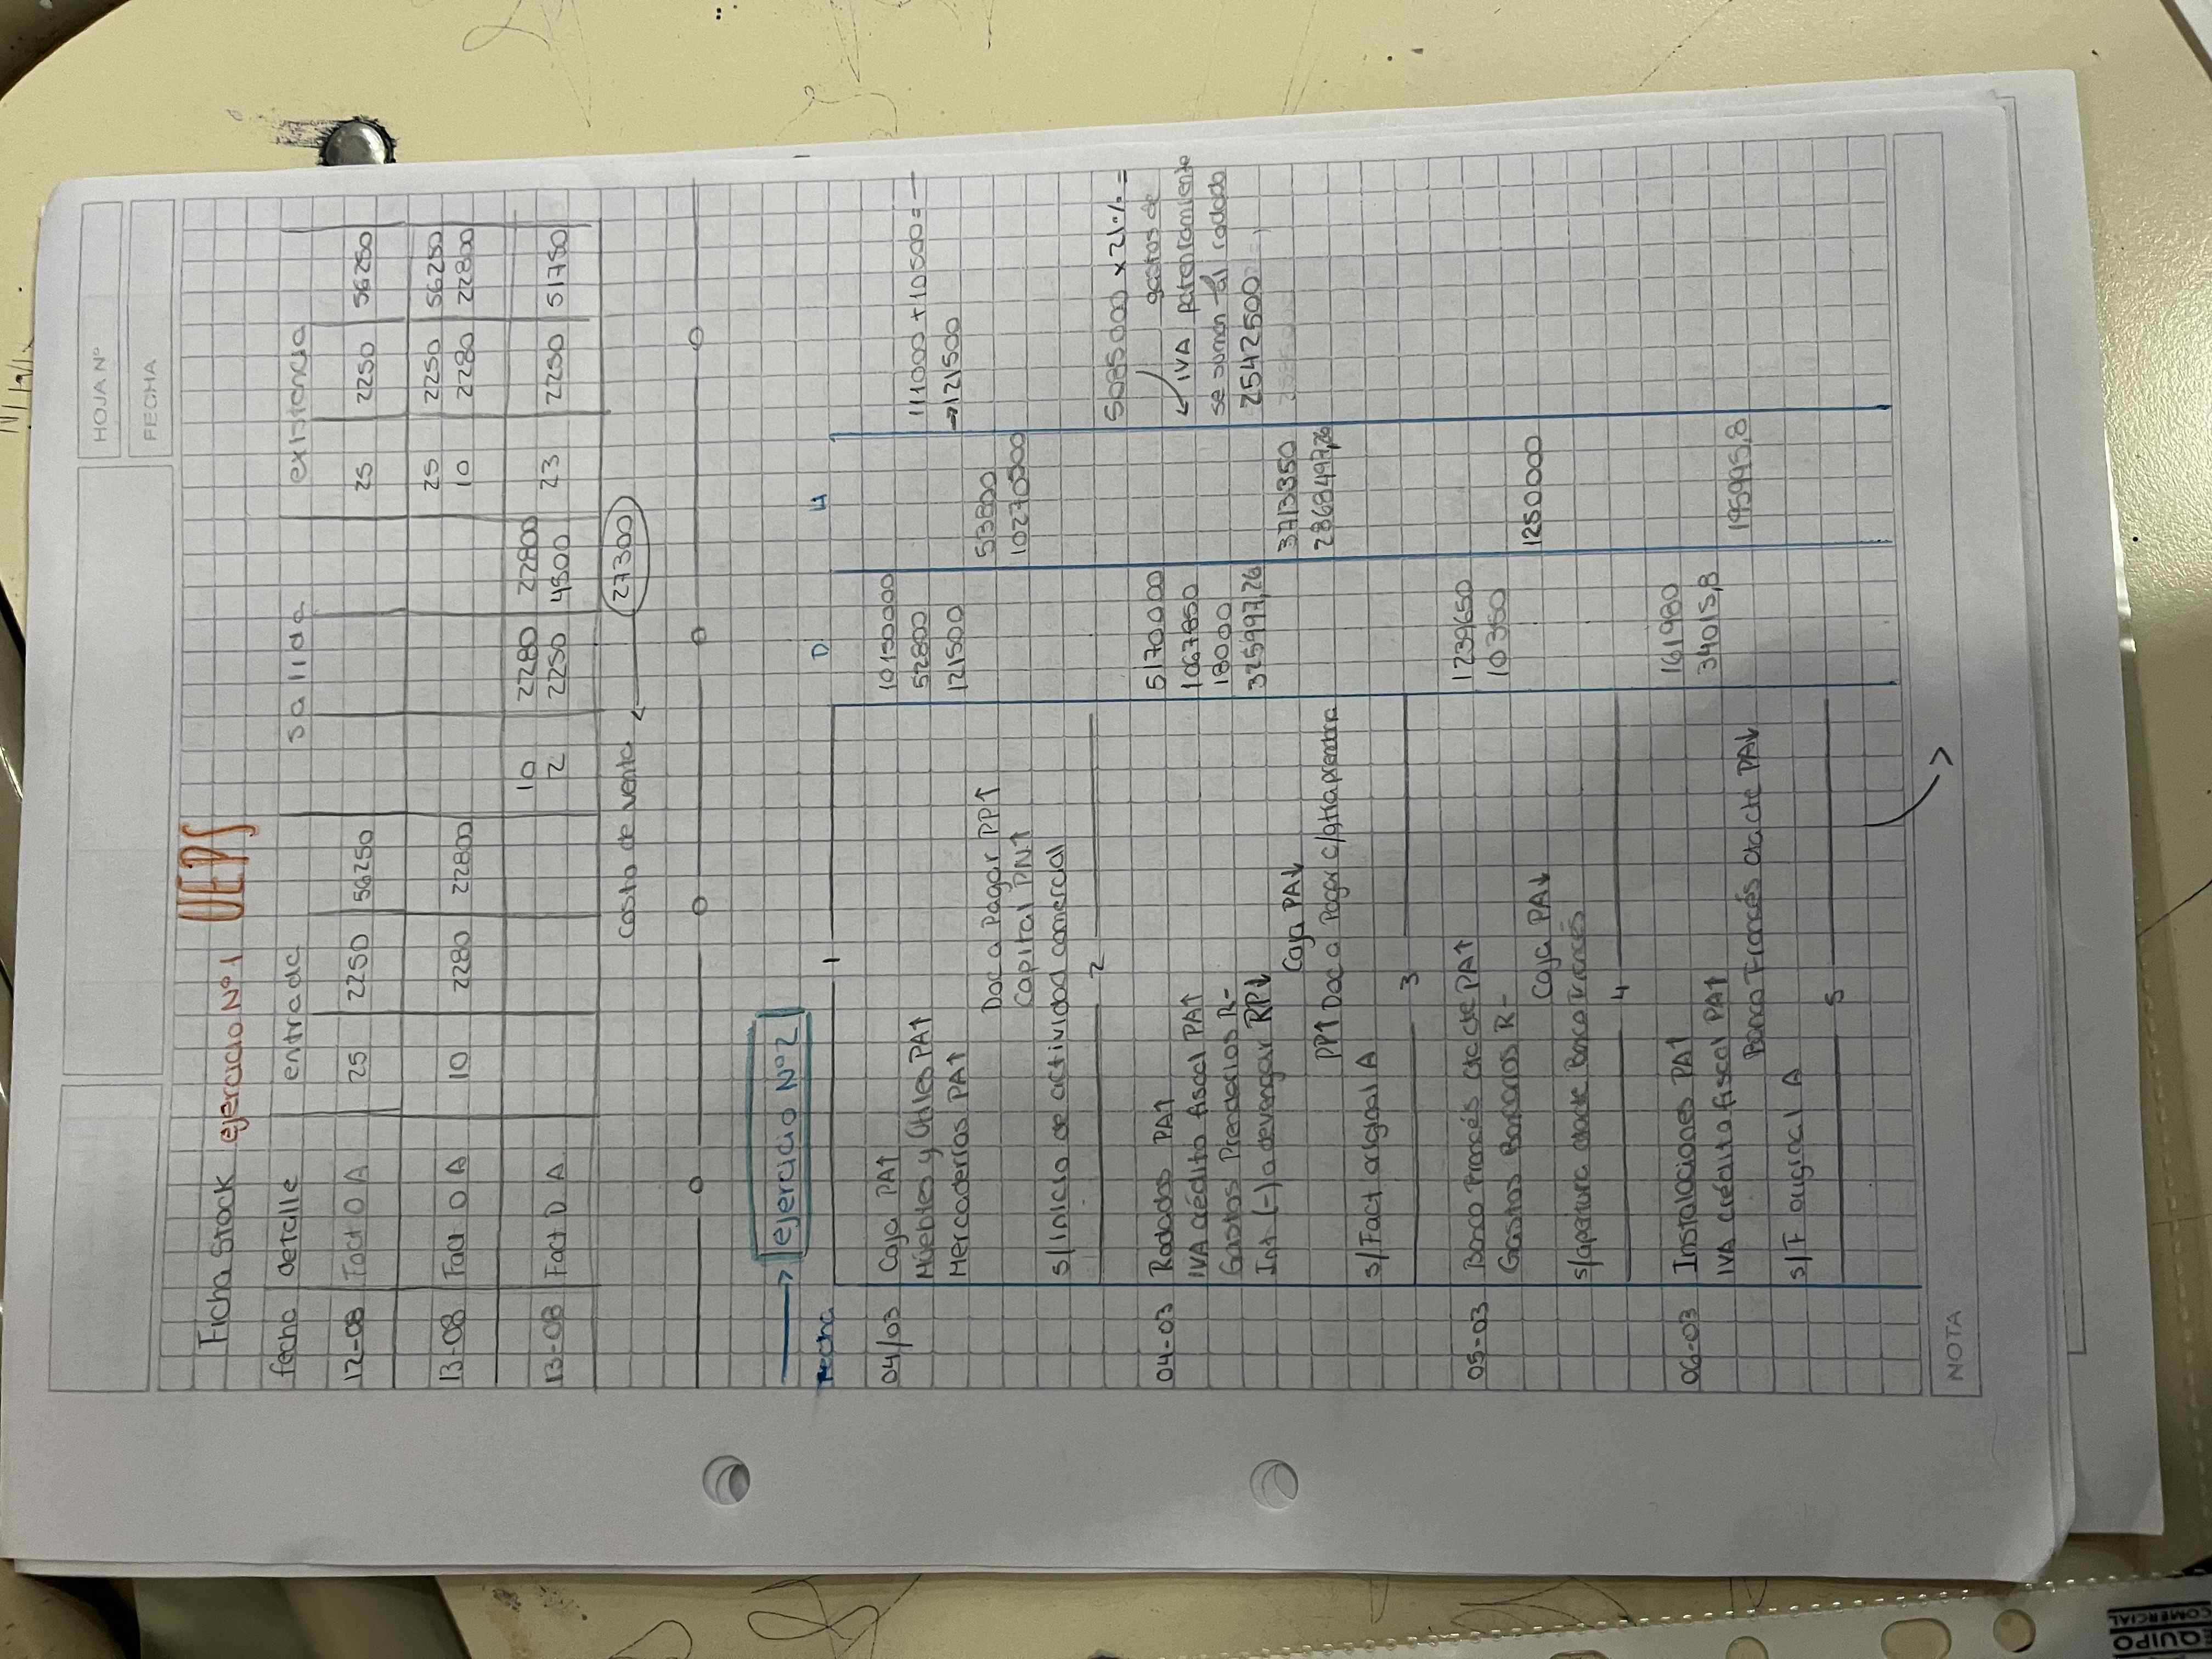 HOJA Nº
FECHA
Ficha Stock ejercicio Nº1 UEPS
fecha detalle entrada salida existencia
12-08 Fact O A 25 2250 56250 25 2250 56250
25 2250 56250
13-08 Fact O A 10 2280 22800 10 2280 22800
10 2280 22800
13-08 Fact D A 2 2250 4500 23 2250 51750
costo de venta 27300
ejercicio Nº2
Fecha D H
1
04/03 Caja PA↑ 10150000
Muebles y Útiles PA↑ 52800 111000+10500=
Mercaderías PA↑ 121500 →121500
Doc a Pagar PP↑ 53800
Capital PN↑ 10270500
s/inicio de actividad comercial
2
5085000 x 21% =
04-03 Rodados PA↑ 5170000 gastos de
IVA crédito fiscal PA↑ 1067850 IVA patentamiento
Gastos Prendarios R- 18000 se suman al rodado
Int. (-) a devengar RP↓ 325997,26 2542500
Caja PA↓ 3713350
PP↑ Doc a Pagar c/gtia prendaria 2868497,26
s/Fact original A
3
05-03 Banco Francés cta cte PA↑ 1239650
Gastos Bancarios R- 10350
Caja PA↓ 1250000
s/apertura ctacte Banco Francés
4
06-03 Instalaciones PA↑ 161980
IVA crédito fiscal PA↑ 34015,8
Banco Francés cta cte PA↓ 195995,8
s/F original A
5
NOTA
EQUIPO
COMERCIAL